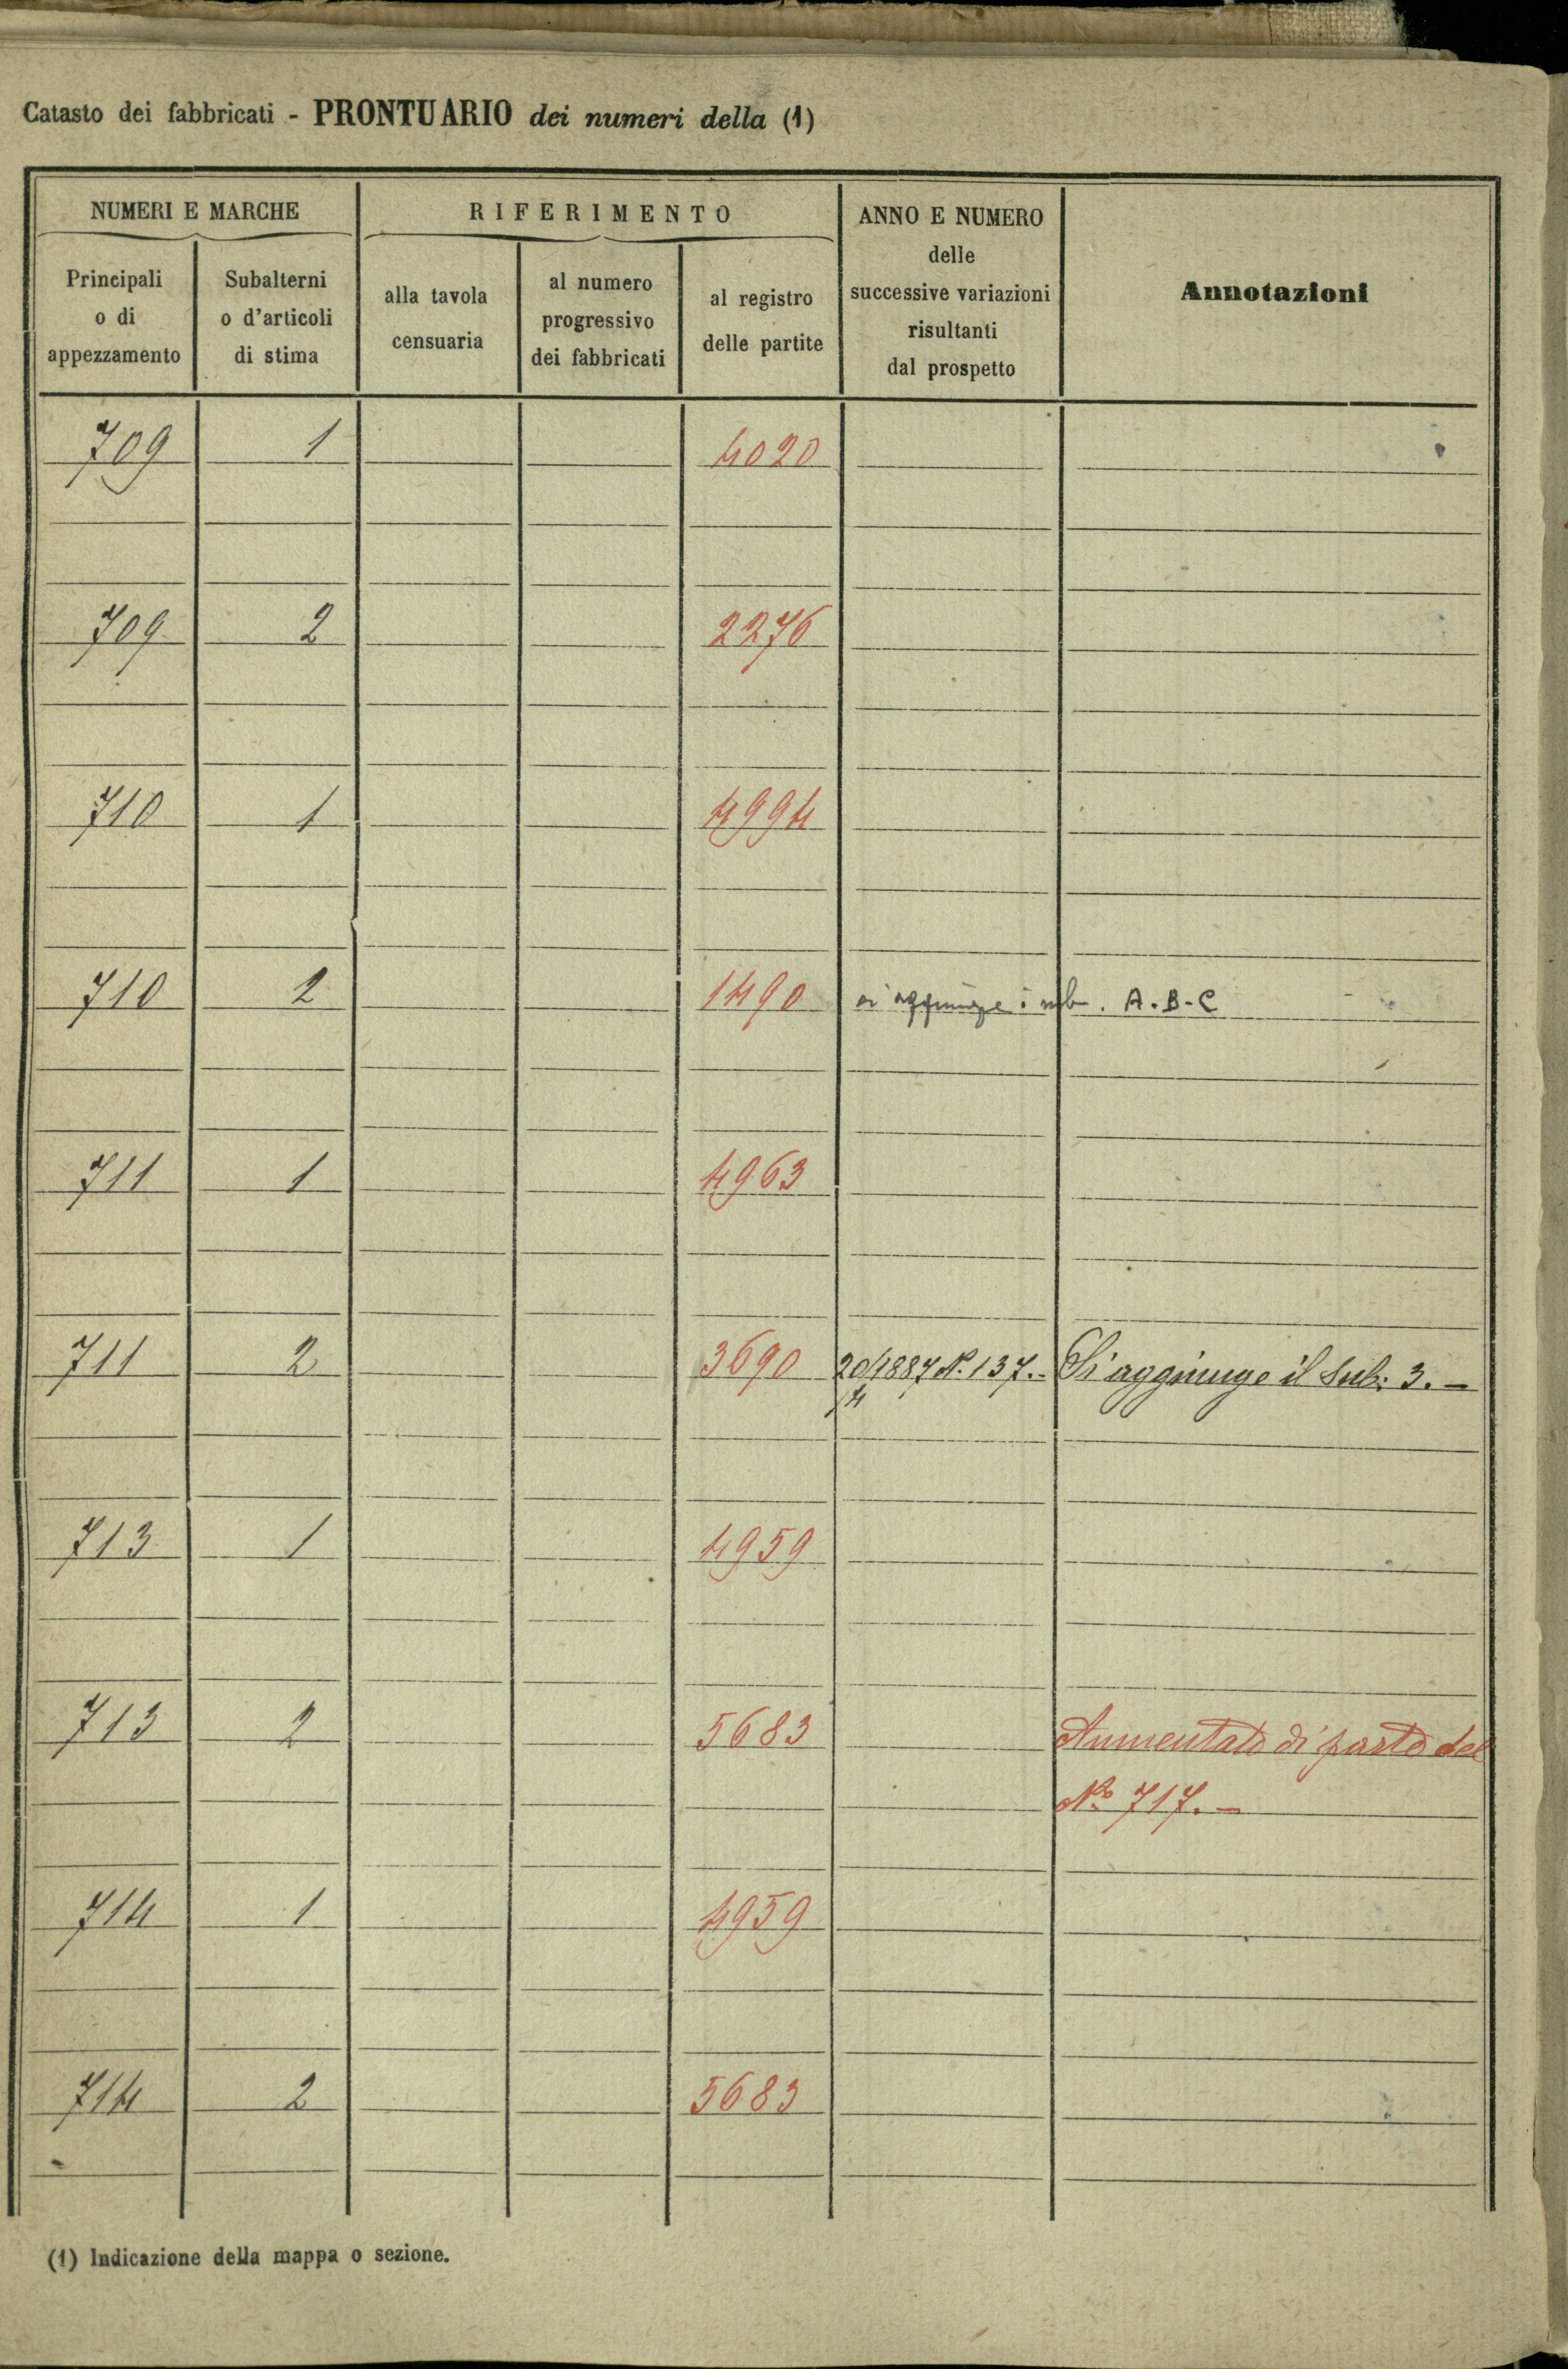 Catasto dei fabbricati - PRONTUARIO dei numeri della (1)
NUMERI E MARCHE
RIFERIMENTO
ANNO E NUMERO
delle
successive variazioni
risultanti
dal prospetto
Annotazioni
Principali
o di
appezzamento
Subalterni
o d'articoli
di stima
alla tavola
censuaria
al numero
progressivo
dei fabbricati
al registro
delle partite
709 1 4020
709 2 2276
710 1 4994
710 2 1490 si aggiunge i sub. A.B-C
711 1 4963
711 2 3690 20/4 1887 N. 137.- Si aggiunge il Sub: 3.-
713 1 4959
713 2 5683 Aumentato di parte del
No 717.-
714 1 4959
714 2 5683
(1) Indicazione della mappa o sezione.